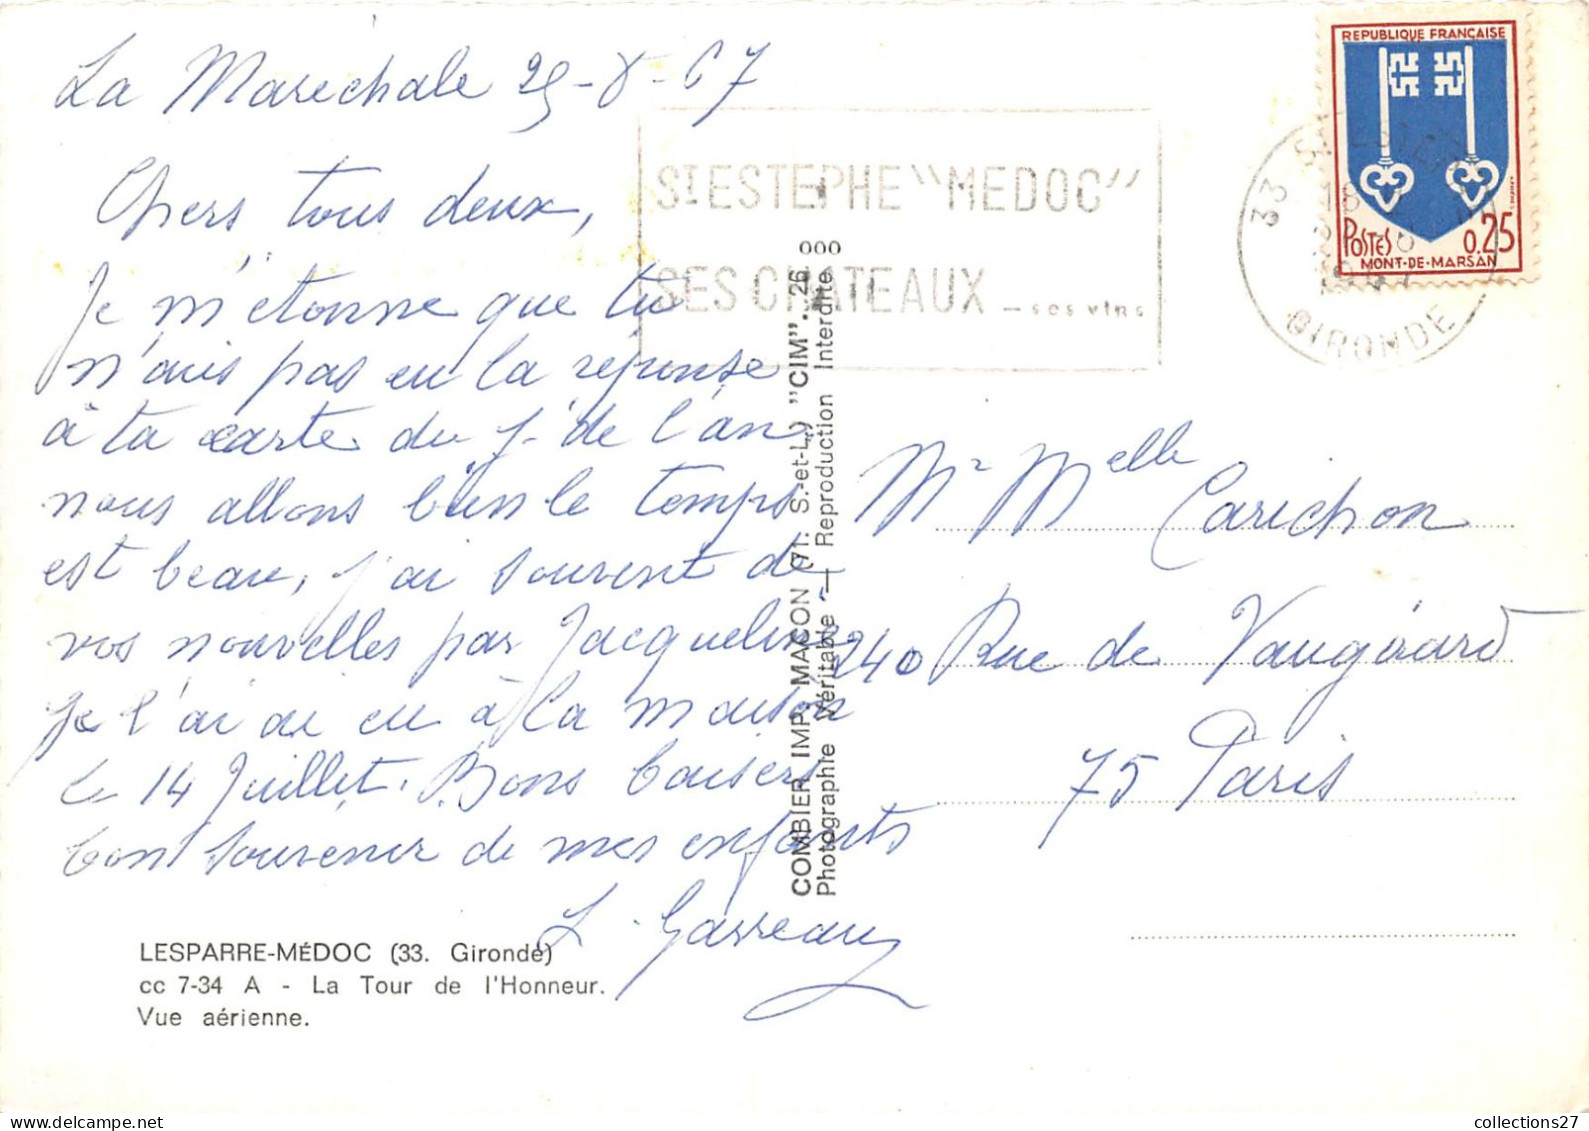 La Maréchale 25-8-67
Chers tous deux,
Je m'étonne que tu
n'ais pas eu la réponse
à ta carte du j. de l'an
nous allons bien le temps
est beau, j'ai souvent de
vos nouvelles par Jacqueline
Je l'ai eu à la maison
le 14 Juillet. Bons baisers
bon souvenir de mes enfants
L. Garreau
LESPARRE-MÉDOC (33. Gironde)
cc 7-34 A - La Tour de l'Honneur.
Vue aérienne.
COMBIER IMP. MACON (71. S.-et-L.) "CIM"..26
Photographie Véritable — Reproduction Interdite
ST ESTEPHE "MEDOC"
SES CHATEAUX — ses vins
REPUBLIQUE FRANÇAISE
POSTES 0.25
MONT-DE-MARSAN
33 ST ESTEPHE
18
1967
GIRONDE
Mr Melle Carichon
240 Rue de Vaugirard
75 Paris
collections27